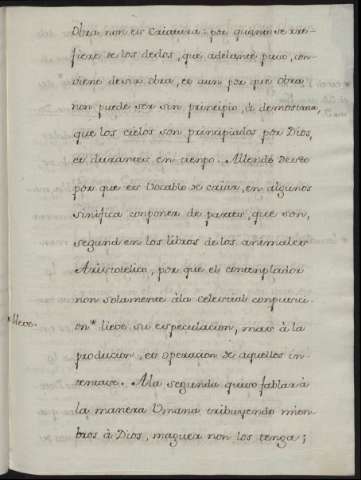 Obra, non es Criatura: por quanto se rre-
fiere de los dedos, que adelante puso, con-
viene decir obra, et aun por que obra
non puede ser sin principio, ê demostrava,
que los cielos son principiados por Dios,
et durantes en tienpo. Allende desto
por que es vocablo de criar, en algunos
sinifica conponer de partes, que son,
segund en los libros de los animales
Aristoteles, por que el contemplador
non solamente â la celestial conpusici-
on* lieve su especulacion, mas â la
*lieve.
producion, et operacion de aquellos in-
A la segunda quiso fablar â
la manera Umana tribuyendo mien-
bros â Dios, maguer non los tenga;